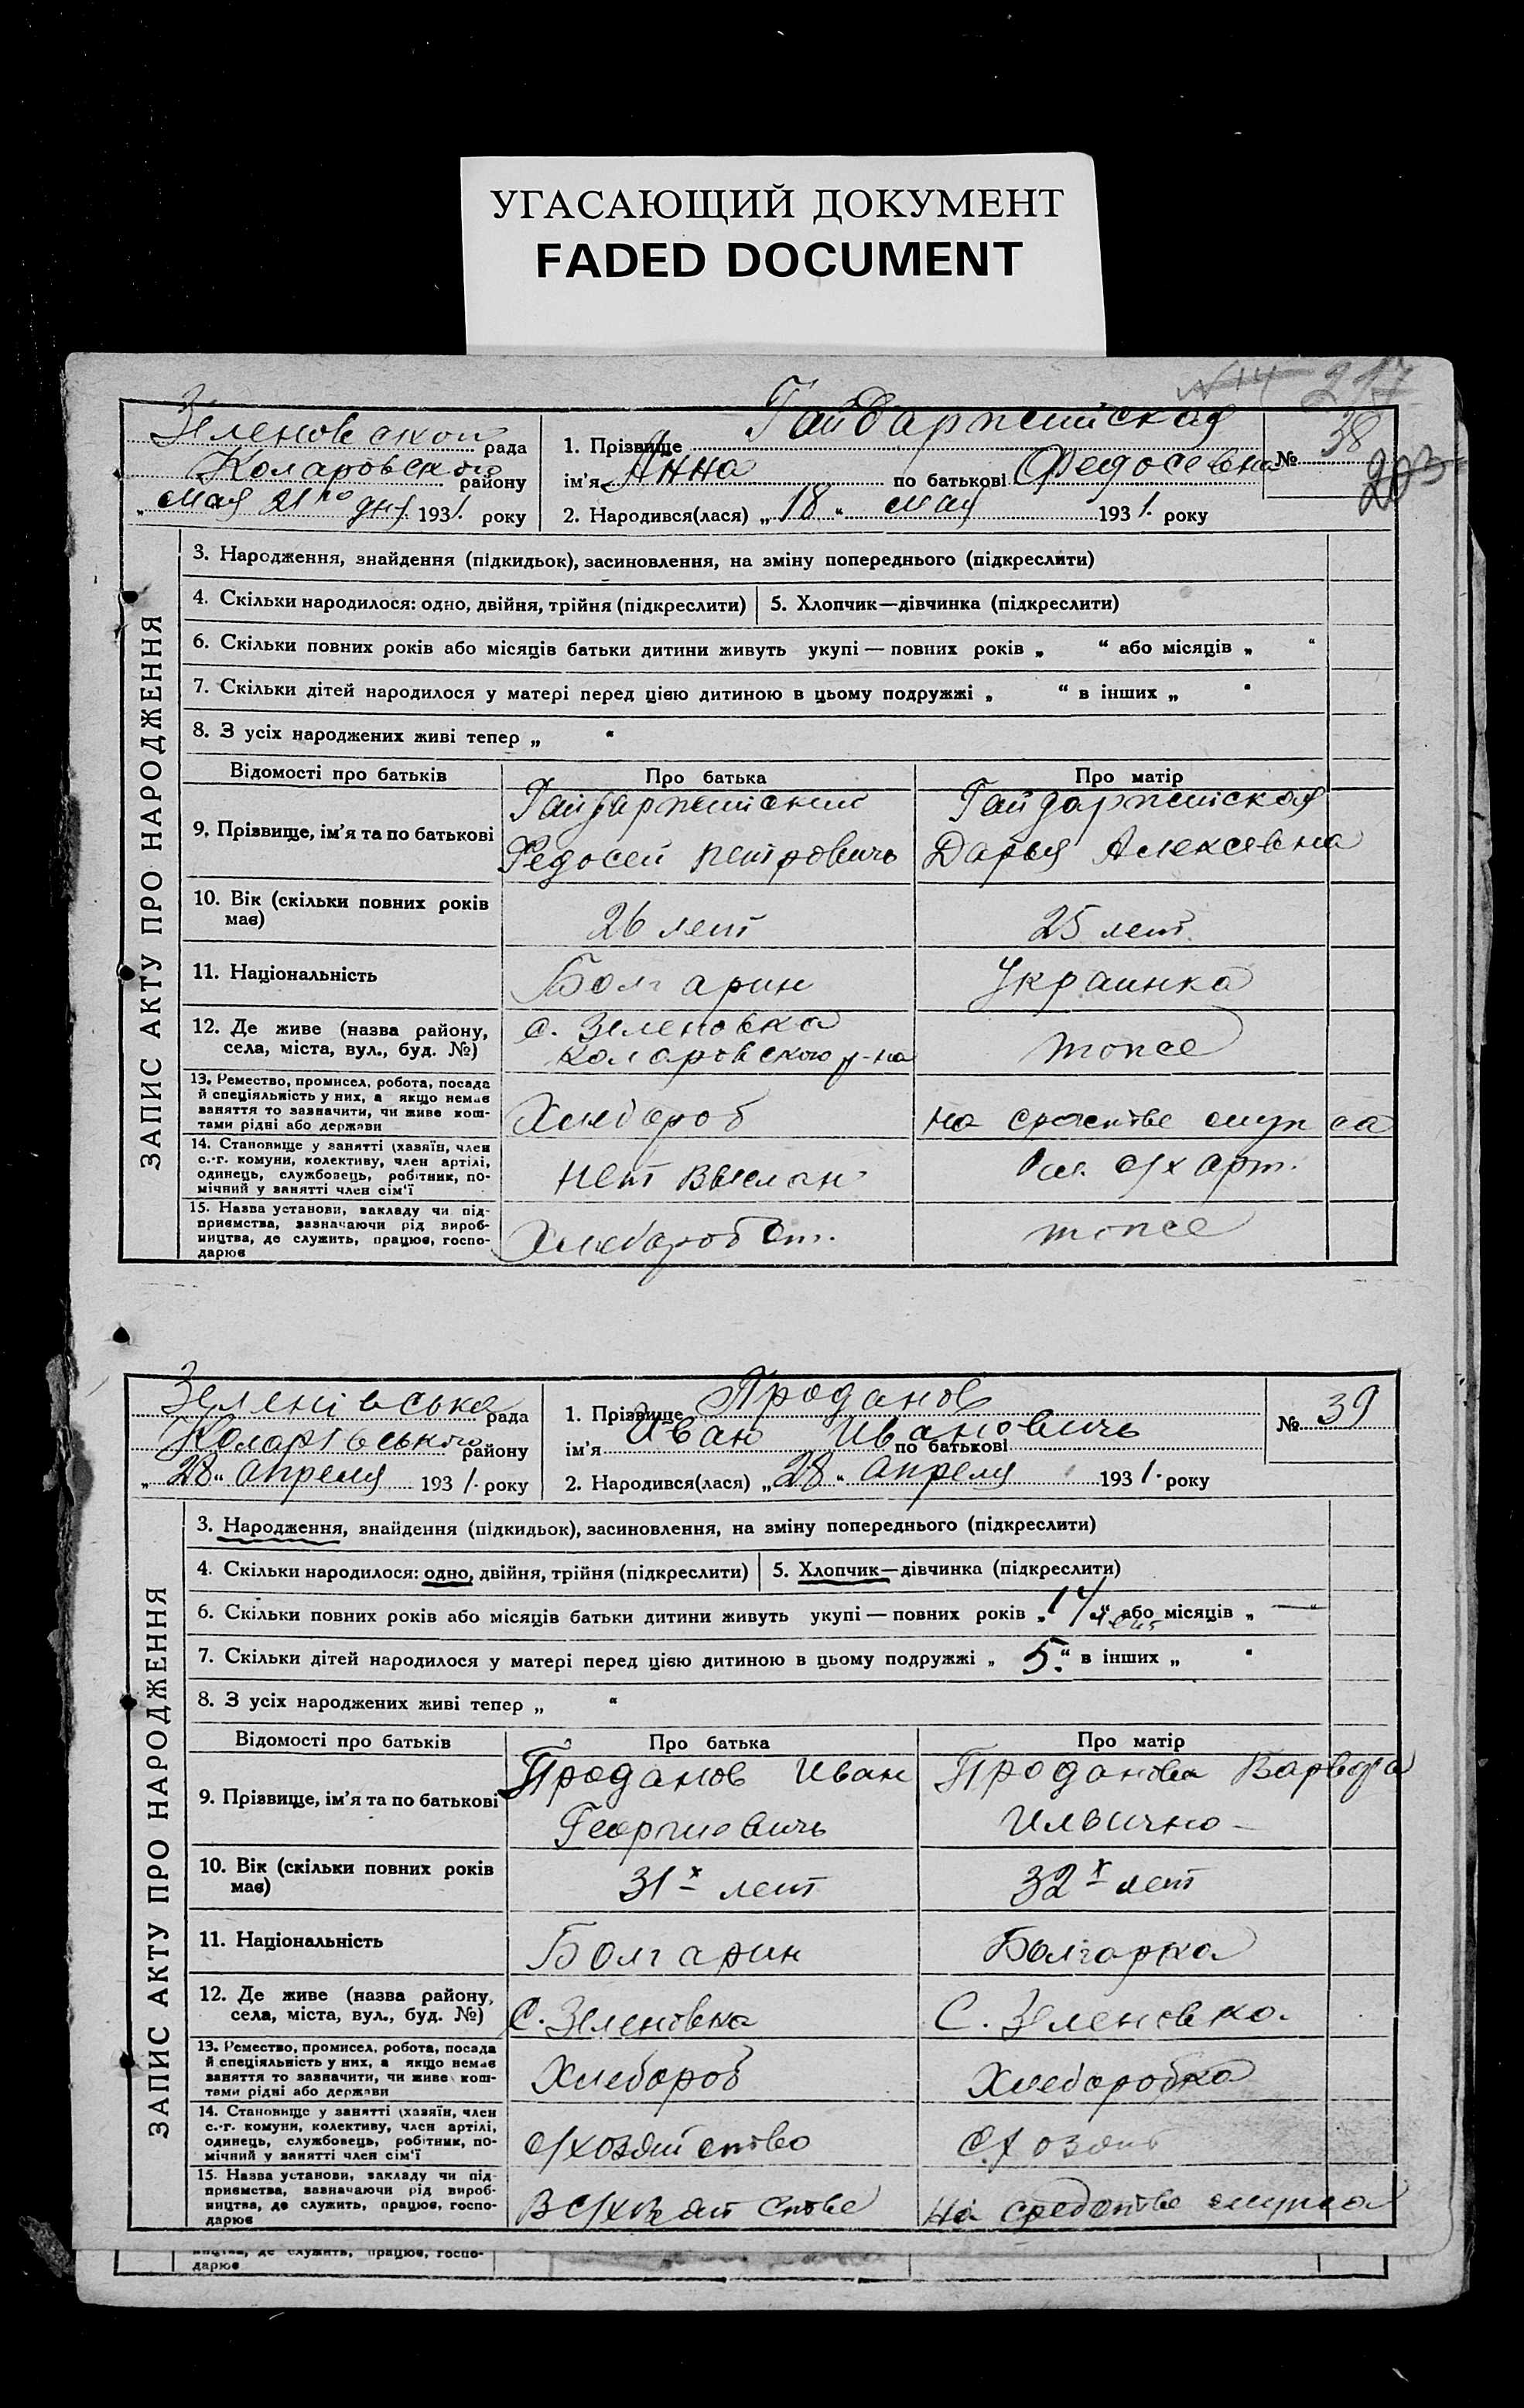 УГАСАЮЩИЙ ДОКУМЕНТ
FADED DOCUMENT
№ 14 217
Зеленовской рада
Коларовского району
„ мая 21го дня 1931. року
1. Прізвище Гайдаржийская
ім'я Анна по батькові Федосевна
2. Народився(лася) „ 18 “ мая 1931. року
№ 38
203
ЗАПИС АКТУ ПРО НАРОДЖЕННЯ
3. Народження, знайдення (підкидьок), засиновлення, на зміну попереднього (підкреслити)
4. Скільки народилося: одно, двійня, трійня (підкреслити) 5. Хлопчик—дівчинка (підкреслити)
6. Скільки повних років або місяців батьки дитини живуть укупі — повних років „ “ або місяців „ “
7. Скільки дітей народилося у матері перед цією дитиною в цьому подружжі „ “ в інших „ “
8. З усіх народжених живі тепер „ “
Відомості про батьків Про батька Про матір
9. Прізвище, ім'я та по батькові
Гайдаржийский
Федосей Петровичь
Гайдаржийская
Дарья Алексевна
10. Вік (скільки повних років
має)
26 лет
25 лет
11. Національність
Болгарин
Украинка
12. Де живе (назва району,
села, міста, вул., буд. №)
с. Зеленовка
Коларовского р-на
тоже
13. Ремество, промисел, робота, посада
й спеціяльність у них, а якщо немає
заняття то зазначити, чи живе кош-
тами рідні або держави
Хлебороб
на
14. Становище у занятті (хазяїн, член
с.-г. комуни, колективу, член артілі,
одинець, службовець, робітник, по-
мічний у занятті член сім'ї
нет выслан
с/х арт.
15. Назва установи, закладу чи під-
приємства, зазначаючи рід вироб-
ництва, де служить, працює, госпо-
дарює
Хлебороб
тоже
Зеленівська рада
Коларівського району
„ 28 “ апреля 1931. року
1. Прізвище Проданов
ім'я Иван по батькові Ивановичь
2. Народився(лася) „ 28 “ апреля 1931. року
№ 39
ЗАПИС АКТУ ПРО НАРОДЖЕННЯ
3. Народження, знайдення (підкидьок), засиновлення, на зміну попереднього (підкреслити)
4. Скільки народилося: одно, двійня, трійня (підкреслити) 5. Хлопчик—дівчинка (підкреслити)
6. Скільки повних років або місяців батьки дитини живуть укупі — повних років „ 14 лет “ або місяців „ — “
7. Скільки дітей народилося у матері перед цією дитиною в цьому подружжі „ 5. “ в інших „ “
8. З усіх народжених живі тепер „ “
Відомості про батьків Про батька Про матір
9. Прізвище, ім'я та по батькові
Проданов Иван
Георгиевичь
Проданова Варвара
Ильична
10. Вік (скільки повних років
має)
31х лет
32х лет
11. Національність
Болгарин
Болгарка
12. Де живе (назва району,
села, міста, вул., буд. №)
С. Зеленовка
С. Зеленовка.
13. Ремество, промисел, робота, посада
й спеціяльність у них, а якщо немає
заняття то зазначити, чи живе кош-
тами рідні або держави
Хлебороб
Хлеборобка
14. Становище у занятті (хазяїн, член
с.-г. комуни, колективу, член артілі,
одинець, службовець, робітник, по-
мічний у занятті член сім'ї
с/хозяйство
с/хозяй
15. Назва установи, закладу чи під-
приємства, зазначаючи рід вироб-
ництва, де служить, працює, госпо-
дарює
В с/хозяйстве
На средстве мужа
ництва, де служить, працює, госпо-
дарює